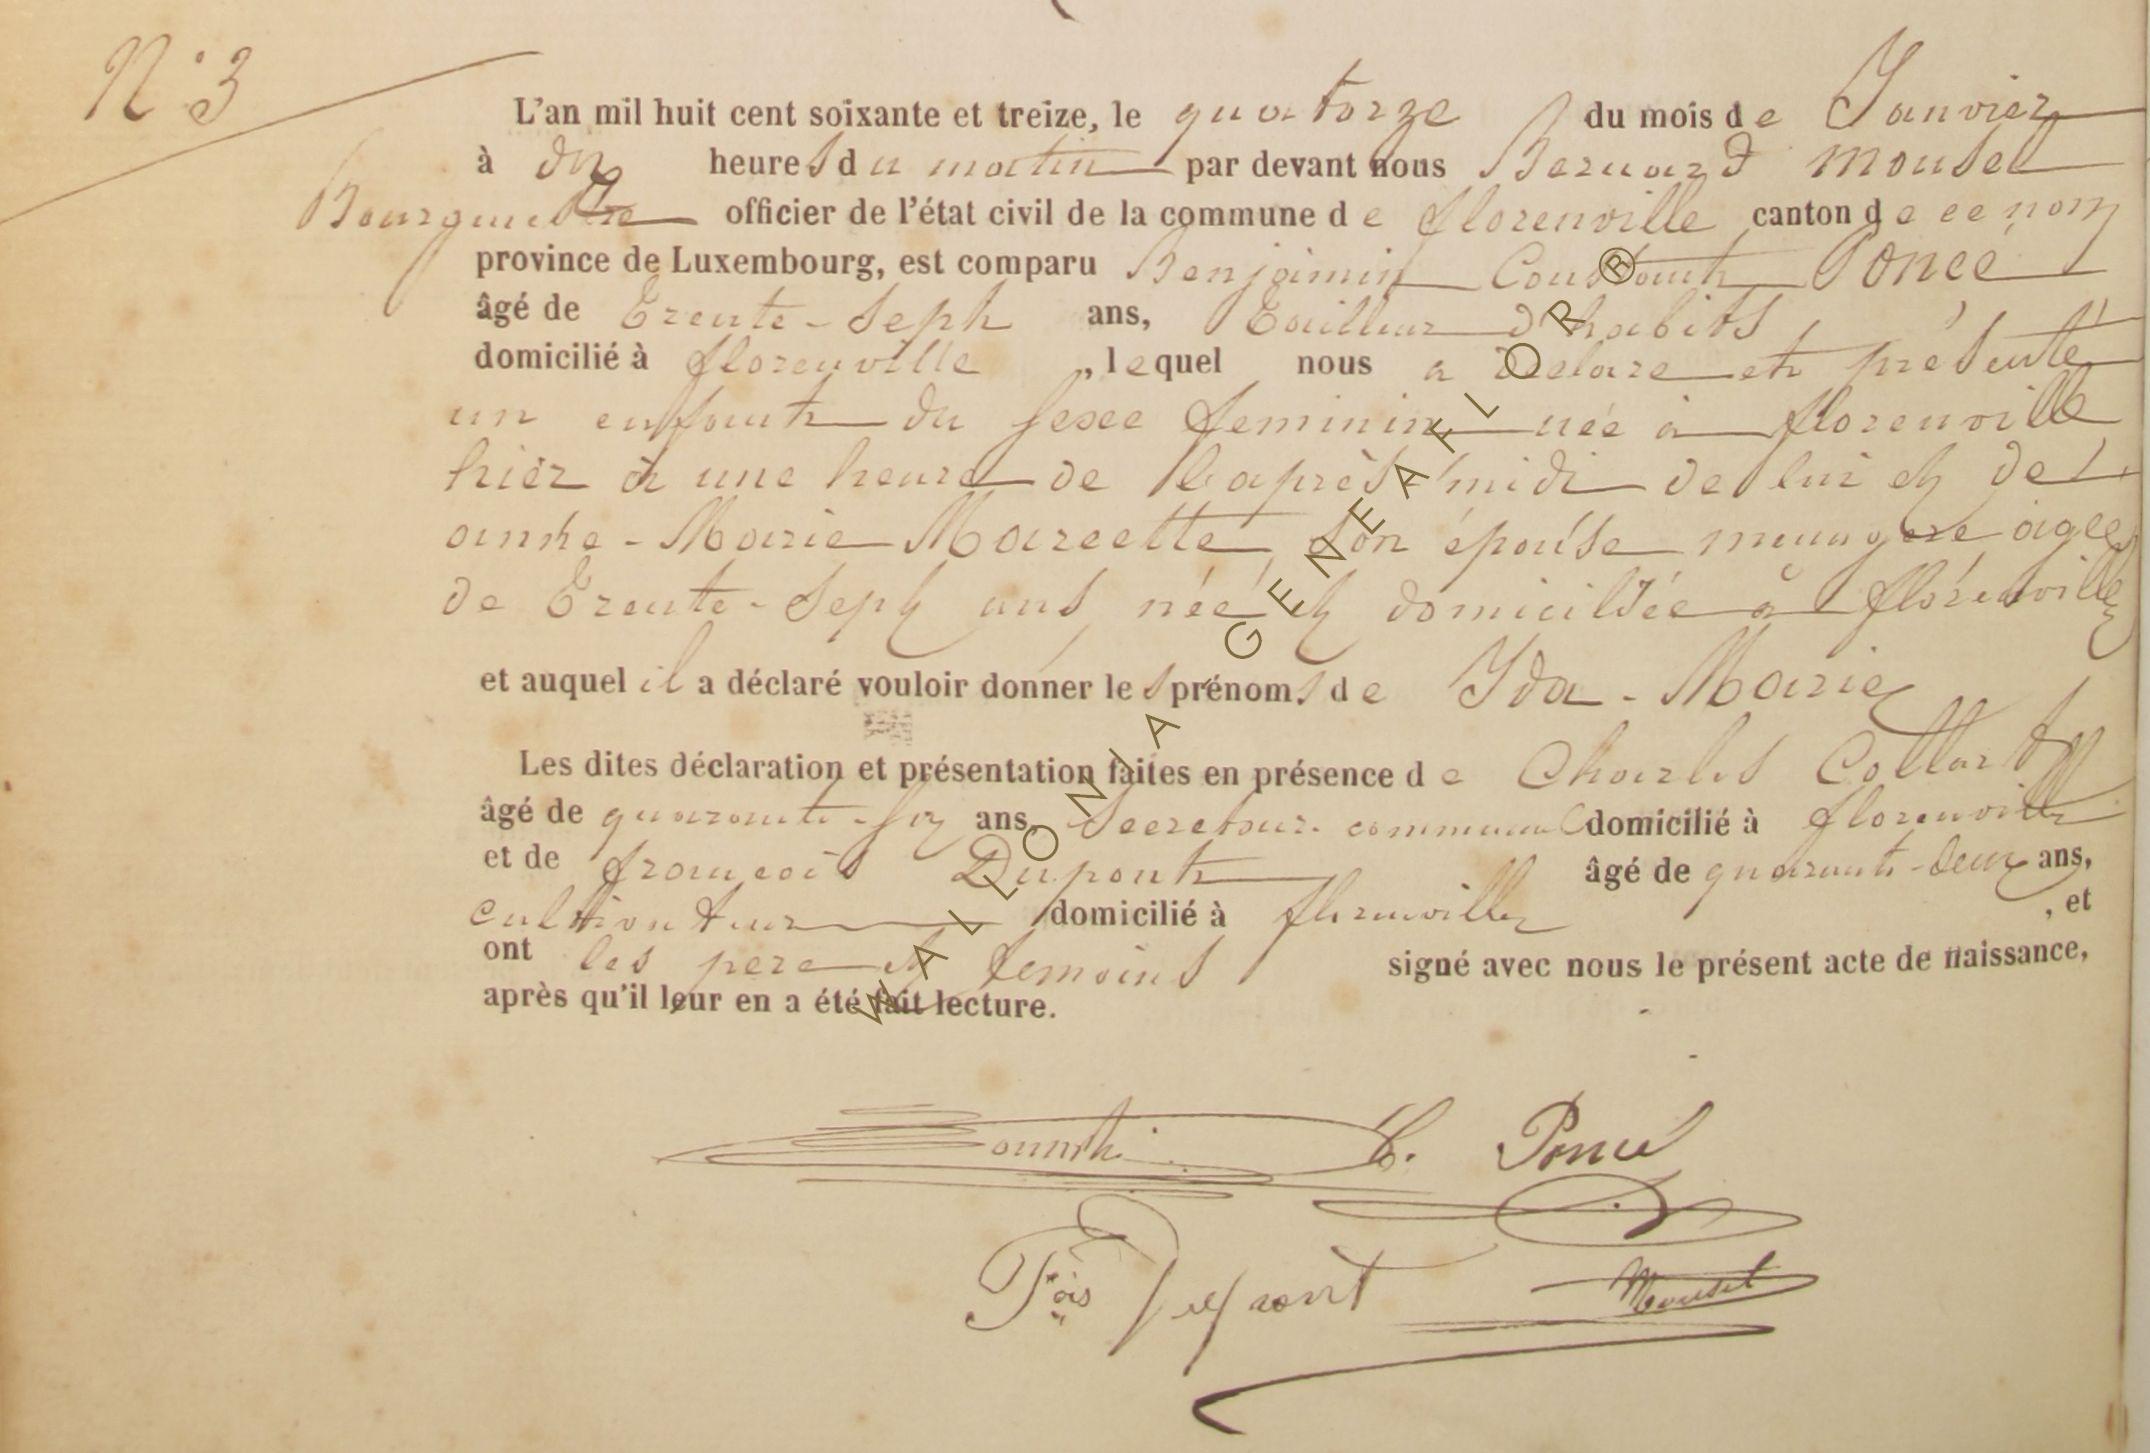 N° 3
L'an mil huit cent soixante et treize, le quatorze du mois de Janvier
à dix heures du matin par devant nous Bernard Mousel
Bourgmestre officier de l'état civil de la commune de florenville canton de ce nom
province de Luxembourg, est comparu Benjamin Constant Poncé
âgé de Trente-Sept ans, Tailleur d'habits
domicilié à florenville, lequel nous a déclaré et présenté
un enfant du sexe feminin née à florenville
hier à une heure de l'après midi de lui et de
anne-Marie Marcette, son épouse menagere agée
de Trente-Sept ans née et domiciliée à florenville
et auquel il a déclaré vouloir donner les prénoms de Ida-Marie
Les dites déclaration et présentation faites en présence de Charles Collart
âgé de quarante-six ans, Secretaire communal domicilié à florenville
et de françois Dupont âgé de quarante-deux ans,
cultivateur domicilié à florenville, et
ont les pere et temoins signé avec nous le présent acte de naissance,
après qu'il leur en a été fait lecture.
C. Poncé
Fçois Dupont
Mousel
WALLONIA GENEAFLOR ®